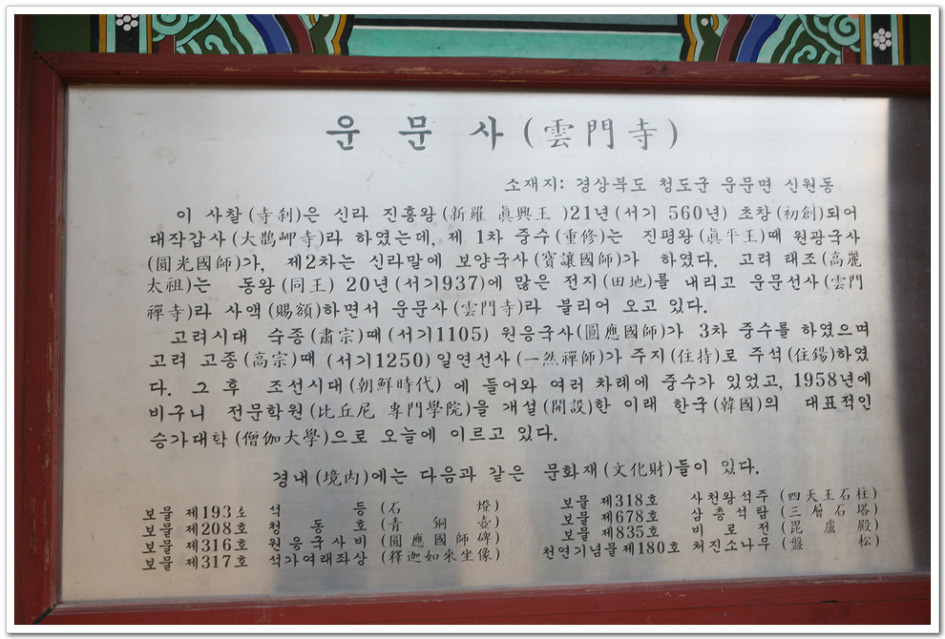 운 문 사 (雲門寺)
소재지: 경상북도 청도군 운문면 신원동
이 사찰(寺刹)은 신라 진흥왕(新羅 眞興王 )21년(서기 560년) 초창(初創)되어
대작갑사(大鵲岬寺)라 하였는데, 제 1차 중수(重修)는 진평왕(眞平王)때 원광국사
(圓光國師)가, 제2차는 신라말에 보양국사(寶讓國師)가 하였다. 고려 태조(高麗
太祖)는 동왕(同王) 20년(서기937)에 많은 전지(田地)를 내리고 운문선사(雲門
禪寺)라 사액(賜額)하면서 운문사(雲門寺)라 불리어 오고 있다.
고려시대 숙종(肅宗)때(서기1105) 원응국사(圓應國師)가 3차 중수를 하였으며
고려 고종(高宗)때 (서기1250)일연선사(一然禪師)가 주지(住持)로 주석(住錫)하였
다. 그 후 조선시대(朝鮮時代) 에 들어와 여러 차례에 중수가 있었고, 1958년에
비구니 전문학원(比丘尼 專門學院)을 개설(開設)한 이래 한국(韓國)의 대표적인
승가대학(僧伽大學)으로 오늘에 이르고 있다.
경내(境內)에는 다음과 같은 문화재(文化財)들이 있다.
보물 제193호 석 등(石 燈)
보물 제208호 청 동 호(青 銅 壺)
보물 제316호 원응국사비(圓應國師碑)
보물 제317호 석가여래좌상(釋迦如來坐像)
보물 제318호 사천왕석주(四天王石柱)
보물 제678호 삼층석탑(三層石塔)
보물 제835호 비 로 전(毘 盧 殿)
천연기념물제180호 처진소나무(盤 松)